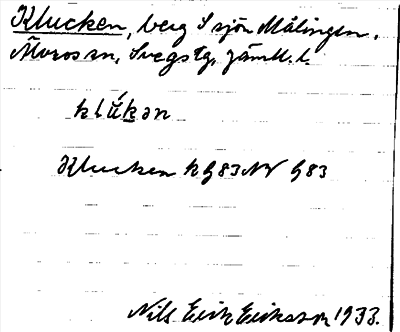 Klucken, berg S sjön Målingen.
Överos sn, Svegs tg, Jämtl. l.
klúkən
Klucken kg 83 NV g 83
Nils Erik Eriksson 1933.